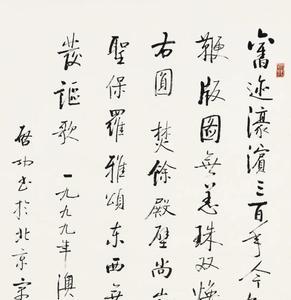 舊迹濠濱三百年今
鞭版圖無恙珠双
右圓 焚餘殿壁尚
聖保羅雅頌东西無
發謳歌 一九九九年澳
啟功书於北京